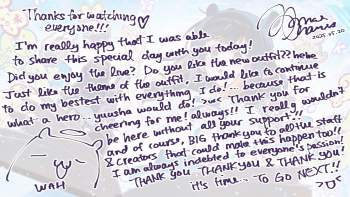 Thanks for watching
everyone!!!
2025.05.20
I'm really happy that I was able
to share this special day with you today!
Did you enjoy the live? Do you like the new outfit?? hehe
Just like the theme of the outfit, I would like to continue
to do my bestest with everything I do!... because that is
what a hero...yuusha would do! >ω< Thank you for
cheering for me! always!! I really wouldn't
be here without all your support!!
and of course, BIG thank you to all the staff
& creators that could make this happen too!!
I am always indebted to everyone's passion!
THANK YOU THANK YOU & THANK YOU!
it's time... To GO NEXT!!
WAH